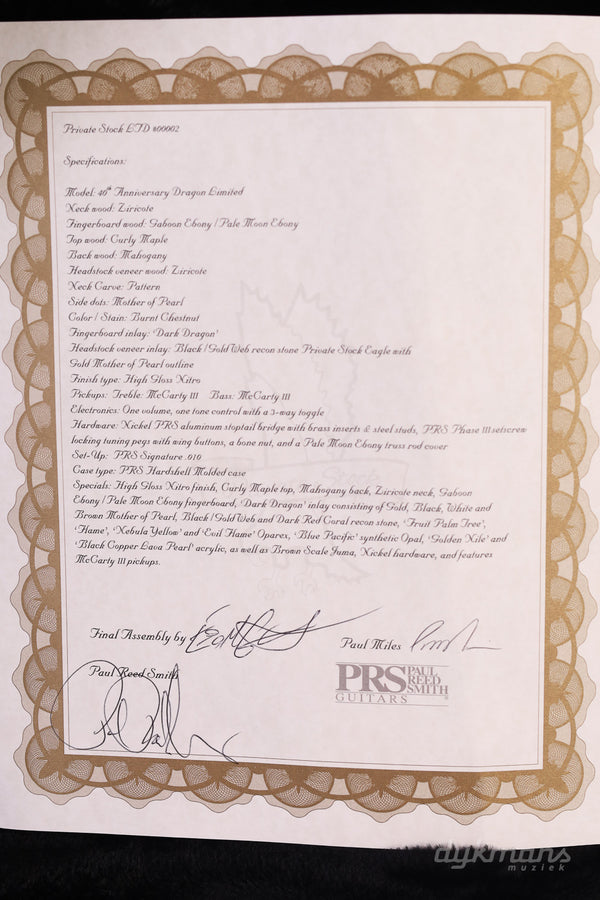 Private Stock LTD #00002
Specifications:
Model: 40th Anniversary Dragon Limited
Neck wood: Ziricote
Fingerboard wood: Gaboon Ebony / Pale Moon Ebony
Top wood: Curly Maple
Back wood: Mahogany
Headstock veneer wood: Ziricote
Neck Carve: Pattern
Side dots: Mother of Pearl
Color / Stain: Burnt Chestnut
Fingerboard inlay: 'Dark Dragon'
Headstock veneer inlay: Black / Gold Web recon stone Private Stock Eagle with
Gold Mother of Pearl outline
Finish type: High Gloss Nitro
Pickups: Treble: McCarty III Bass: McCarty III
Electronics: One volume, one tone control with a 3-way toggle
Hardware: Nickel PRS aluminum stoptail bridge with brass inserts & steel studs, PRS Phase III setscrew
locking tuning pegs with wing buttons, a bone nut, and a Pale Moon Ebony truss rod cover
Set-Up: PRS Signature .010
Case type: PRS Hardshell Molded case
Specials: High Gloss Nitro finish, Curly Maple top, Mahogany back, Ziricote neck, Gaboon
Ebony / Pale Moon Ebony fingerboard, 'Dark Dragon' inlay consisting of Gold, Black, White and
Brown Mother of Pearl, Black / Gold Web and Dark Red Coral recon stone, 'Fruit Palm Tree',
'Flame', 'Nebula Yellow' and 'Evil Flame' Oparex, 'Blue Pacific' synthetic Opal, 'Golden Nile' and
'Black Copper Lava Pearl' acrylic, as well as Brown Scale Juma, Nickel hardware, and features
McCarty III pickups.
Final Assembly by
Paul Miles
Paul Reed Smith
PRS PAUL REED SMITH
GUITARS
dykmans
muziek